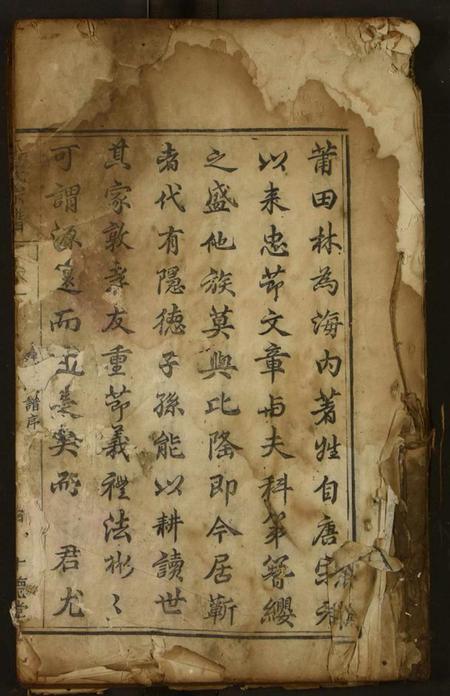 莆田林為海內著姓自唐宋
以来忠節文章與夫科第簪纓
之盛他族莫與比隆即今居蘄
者代有隱德子孫能以耕讀世
其家敦孝友重節義禮法彬〻
可謂源遠而 矣而 君尤
宗譜
譜序
德堂